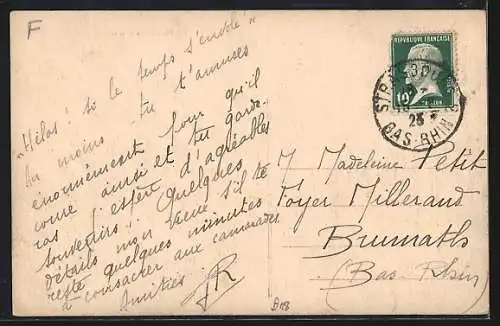 F
"Hélas! so le temps s'envole"
Au moins tu t'amuses
énormément pour qu'il
coure ainsi et tu garde-
ras j'espère d'agréables
souvenirs". Quelques
détails mon vieux s'il te
reste quelques minutes
à consacrer aux camarades
Amitiés
REPUBLIQUE FRANÇAISE
10
STRASBOURG
25
BAS-RHIN
M Madeleine Petit
Foyer Millerand
Brumath
(Bas-Rhin)
B18